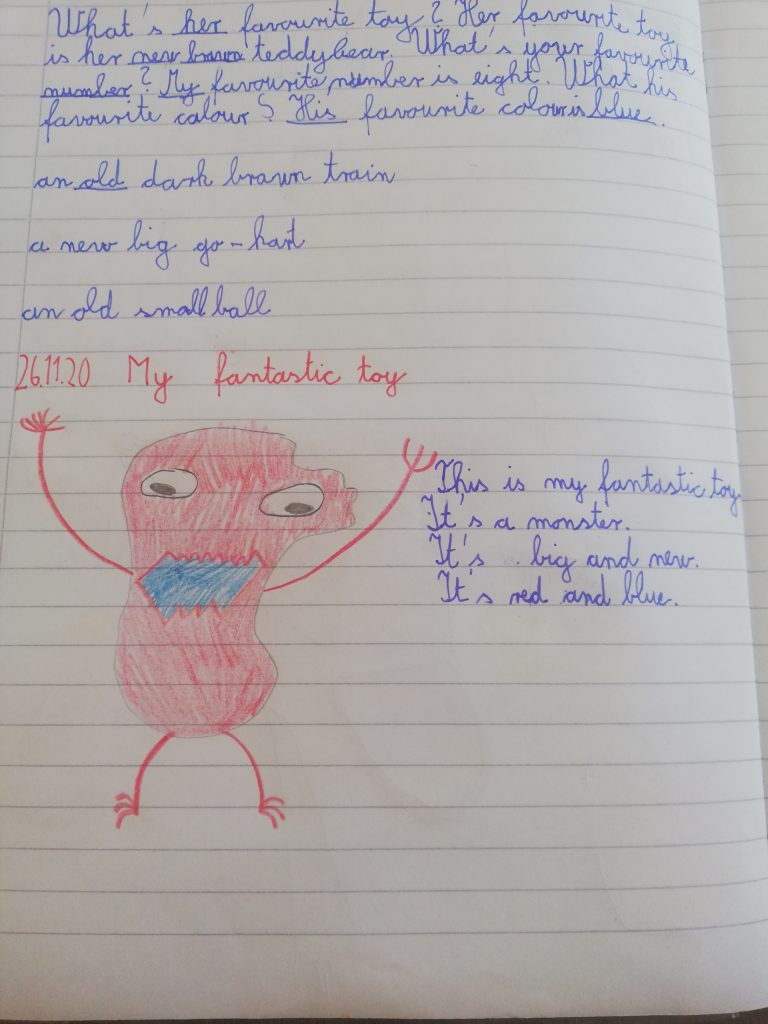 What's her favourite toy? Her favourite toy
is her new brown teddy bear. What's your favourite
number? My favourite number is eight. What his
favourite colour? His favourite colour is blue.
an old dark brown train
a new big go-kart
an old small ball
26.11.20 My fantastic toy
This is my fantastic toy.
It's a monster.
It's big and new.
It's red and blue.